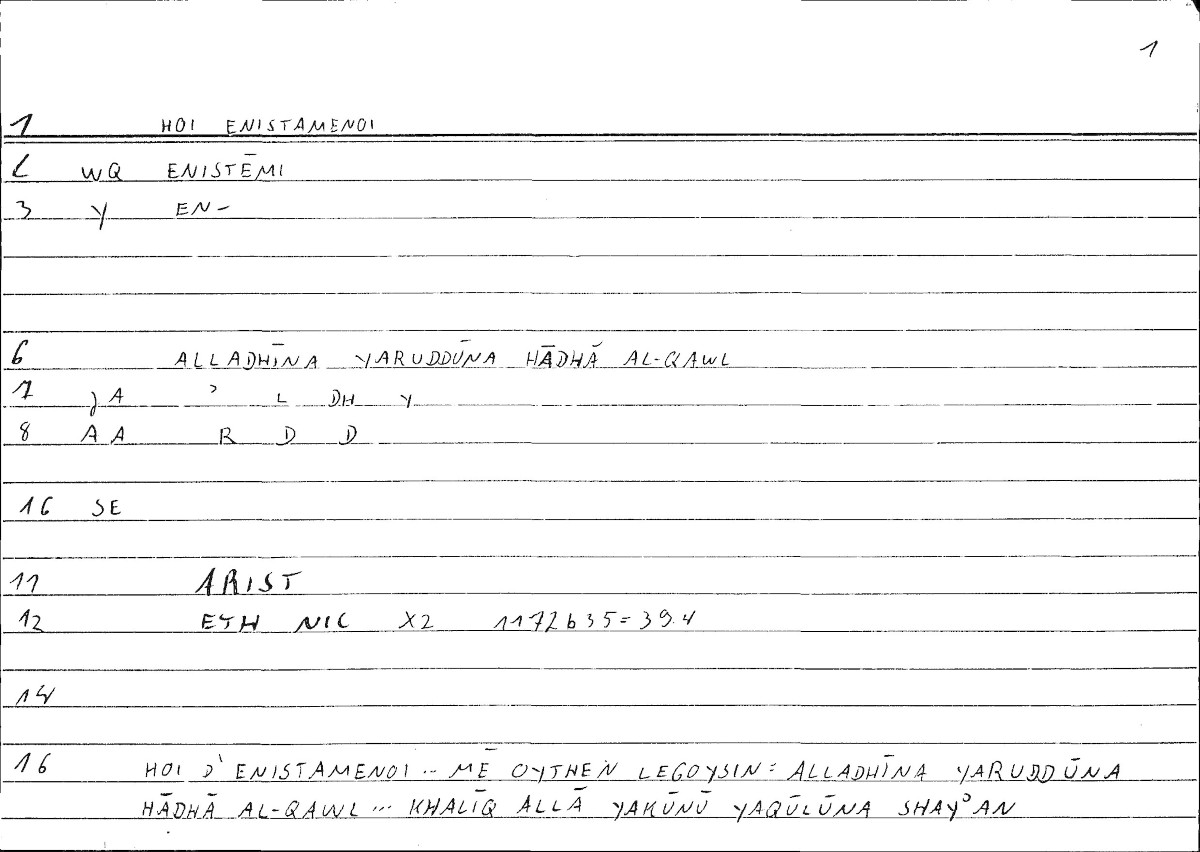 1
1 HOI ENISTAMENOI
2 WQ ENISTĒMI
3 Y EN-
6 ALLADHĪNA YARUDDŪNA HĀDHĀ AL-QAWL
7 JA ʾ L DH Y
8 AA R D D
16 SE
11 ARIST
12 ETH NIC X2 1172b35=39.4
14
16 HOI D' ENISTAMENOI ... MĒ OYTHEN LEGOYSIN: ALLADHĪNA YARUDDŪNA
HĀDHĀ AL-QAWL ... KHALĪQ ALLĀ YAKŪNŪ YAQŪLŪNA SHAYʾAN